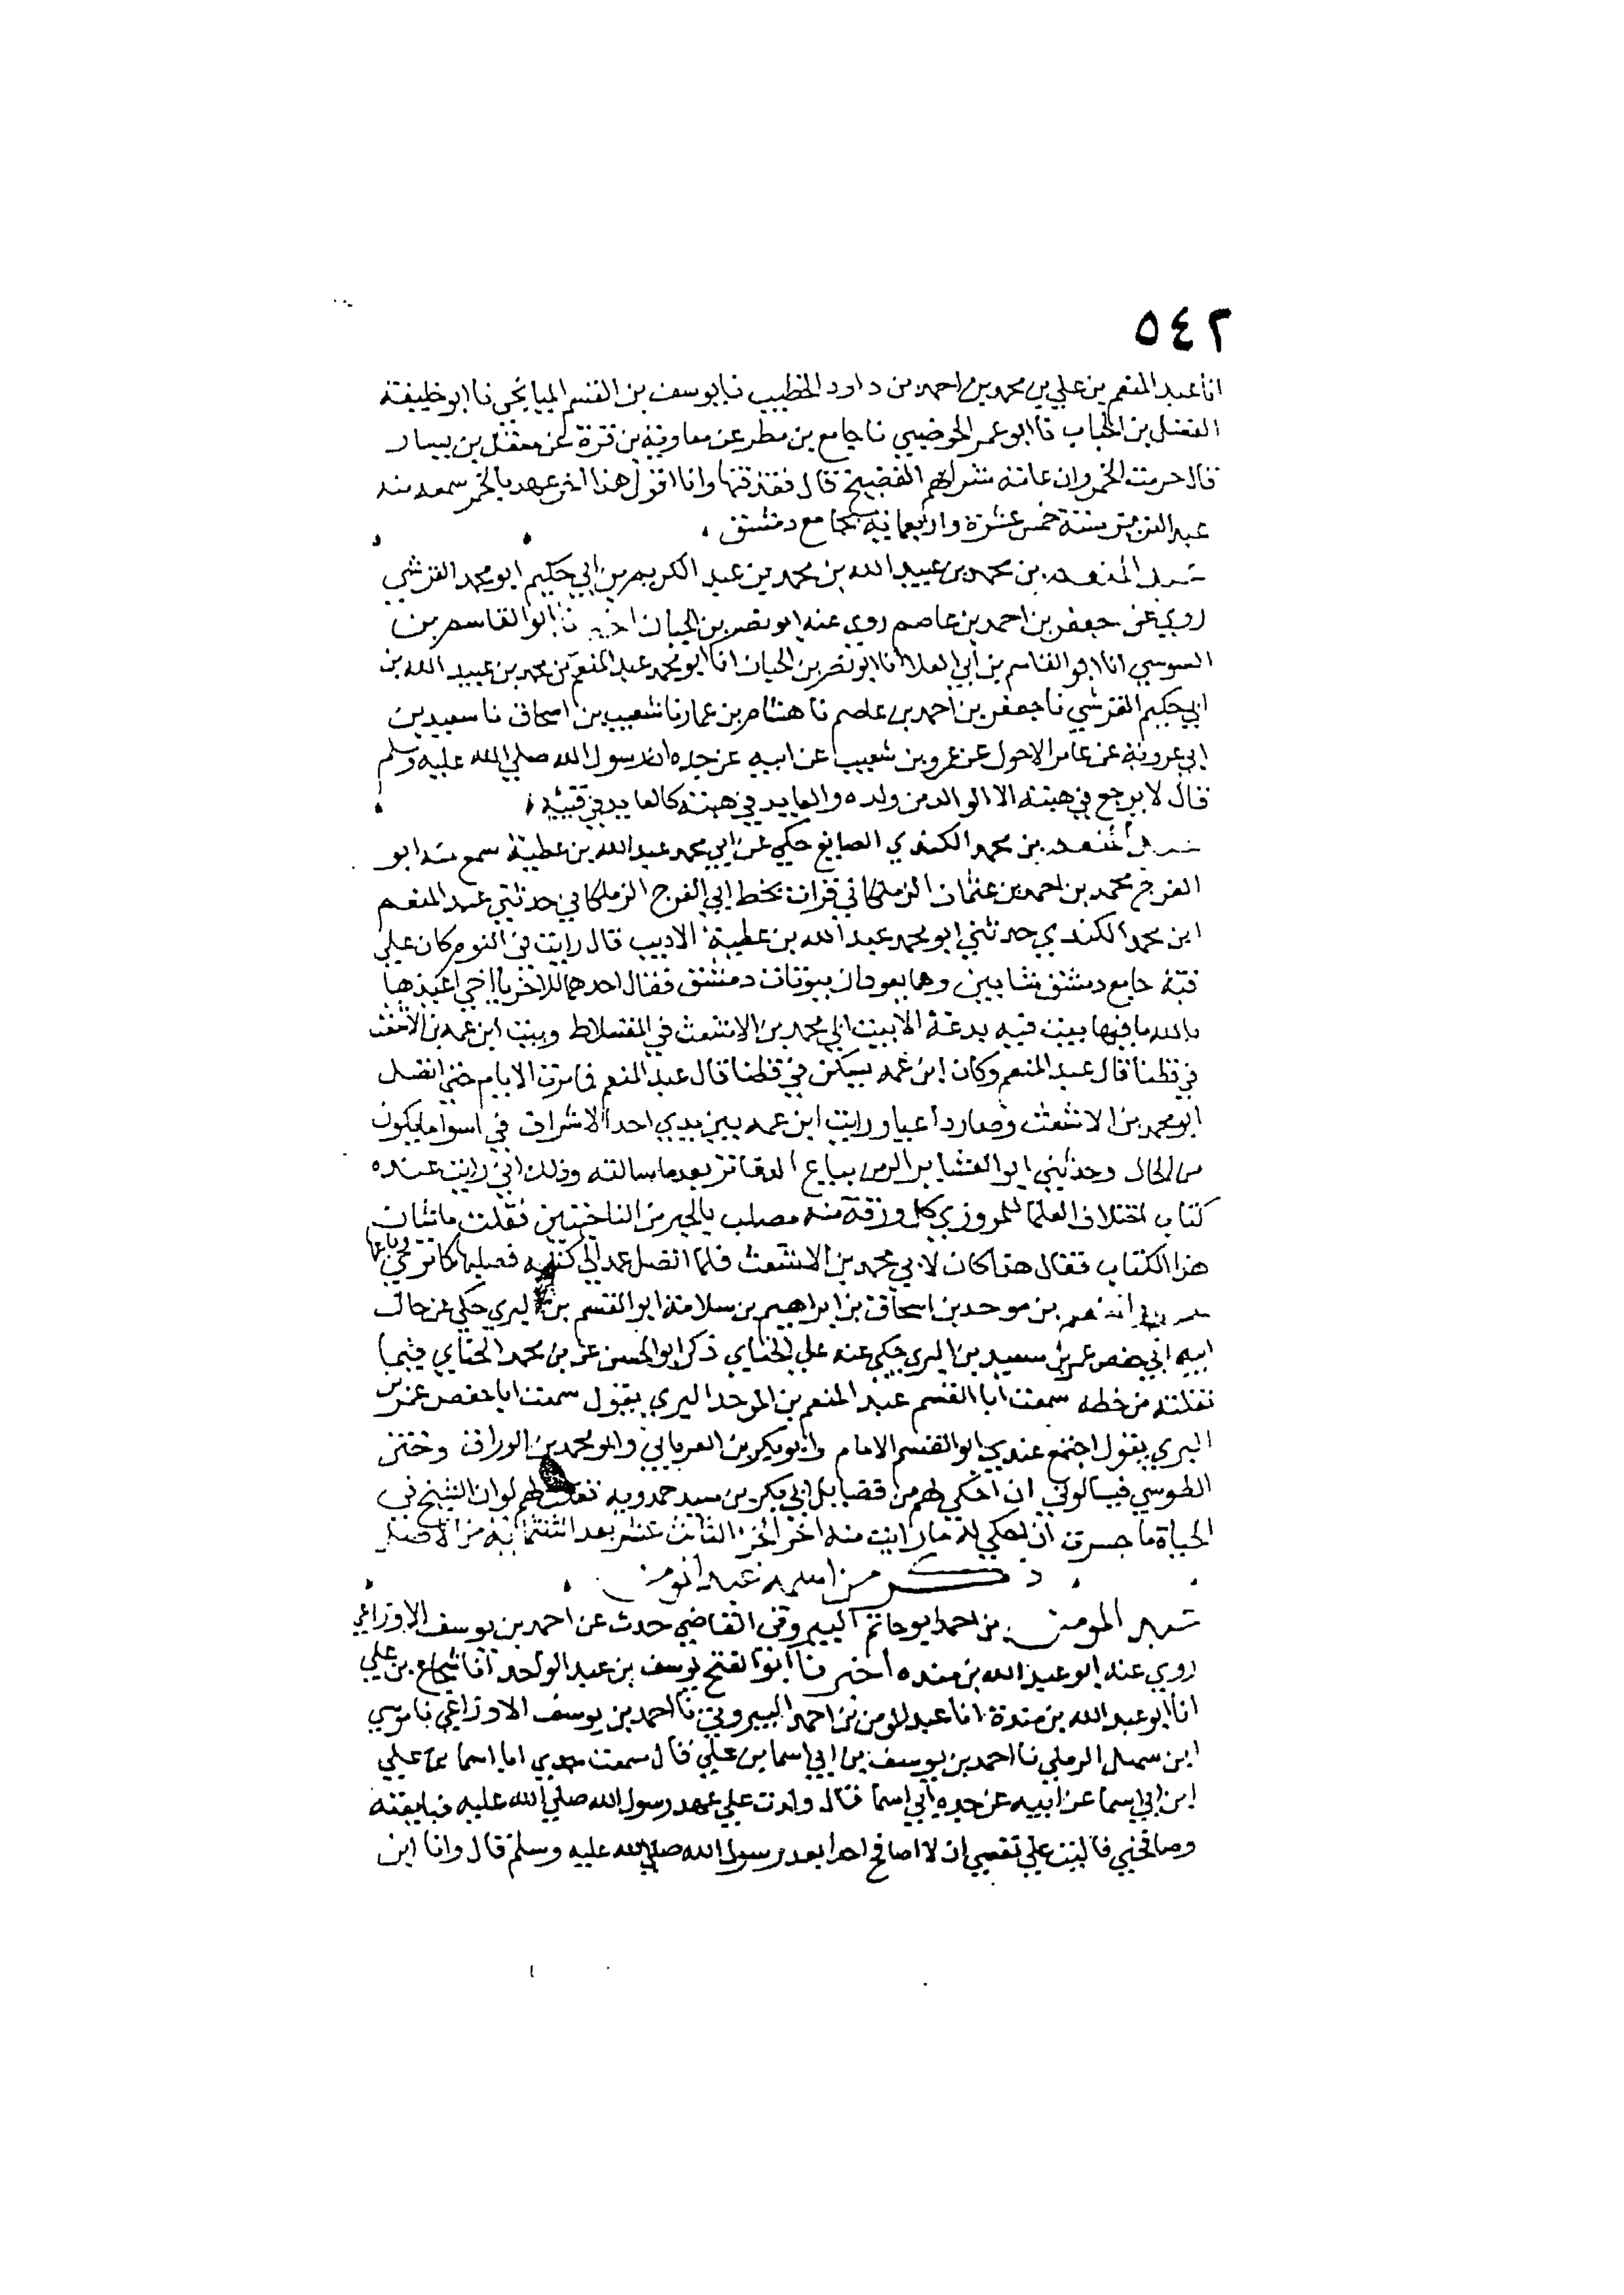 ٥٤٢
انا عبد المنعم بن علي بن محمد بن احمد بن داود الخطيب نا يوسف بن القسم الميانجي نا ابو خليفة
الفضل بن الحباب نا ابو عمر الحوضي نا جامع بن مطر عن معاوية بن قرة عن معقل بن يسار
قال حرمت الخمر وان عامة شرابهم الفضيخ قال فقذفتها وانا اقول هذا اخر عهد بالخمر سمعه منه
عبد العزيز سنة خمس عشرة واربعماية بجامع دمشق
عبد المنعم بن محمد بن عبيد الله بن محمد بن عبد الكريم بن ابي حكيم ابو محمد القرشي
روي عن جعفر بن احمد بن عاصم روي عنه ابو نصر بن الجبان اخبرنا ابو القاسم بن
السوسي انا ابو القاسم بن ابي العلا انا ابو نصر بن الجبان انا ابو محمد عبد المنعم بن محمد بن عبيد الله بن
ابي حكيم القرشي نا جعفر بن احمد بن عاصم نا هشام بن عمار نا شعيب بن اسحاق نا سعيد بن
ابي عروبة عن عامر الاحول عن عمرو بن شعيب عن ابيه عن جده ان رسول الله صلي الله عليه وسلم
قال لا يرجع في هبته الا الوالد من ولده والعايد في هبته كالعايد في قيئه
عبد المنعم بن محمد الكندي الصايغ حكي عن ابي محمد عبد الله بن عطية سمع منه ابو
الفرج محمد بن احمد بن عثمان الزملكاني قرات بخط ابي الفرج الزملكاني حدثني عبد المنعم
ابن محمد الكندي حدثني ابو محمد عبد الله بن عطية الاديب قال رايت في النوم كان علي
قبة جامع دمشق شابين وهما يعودان بيوتات دمشق فقال احدهما للاخر يا اخي اعيذها
بالله ما فيها بيت فيه بدعة الا بيت ابي محمد بن الاشعث في الفسلاط وبيت ابن عمه بن الاشعث
في قطنا قال عبد المنعم وكان ابن عمه يسكن في قطنا قال عبد المنعم فما مرت الايام حتي اتصل
ابو محمد بن الاشعث وصار داعيا ورايت ابن عمه بين يدي احد الاشراف في اسوا ما يكون
من الحال وحدثني ابو العشاير الرمن بياع الدفاتر بعد ما سالته وذلك اني رايت عنده
كتاب اختلاف العلما للمروزي كل ورقة منه مصلب بالحبر من الناحيتين فقلت ما شان
هذا الكتاب فقال هذا كان لابي محمد بن الاشعث فلما اتصل عمد الي كتبه فصلبها كما تري وباعها
عبد المنعم بن موحد بن اسحاق بن ابراهيم بن سلامة ابو القسم بن البري حكي عن خال
ابيه ابي حفص عمر بن سعيد بن البري حكي عنه علي الحناي ذكر ابو الحسن علي بن محمد الحناي فيما
نقلته من خطه سمعت ابا القسم عبد المنعم بن الموحد البري يقول سمعت ابا حفص عمر بن
البري يقول اجتمع عندي ابو القسم الامام وابو بكر بن وابو محمد بن الوراق
الطوسي فسالوني ان احكي لهم من فضايل ابي بكر بن سيد حمدويه فقلت لهم لو ان الشيخ في
الحياة ما جسرت ان احكي له ما رايت منه اخر الجز الثالث عشر بعد الثلثماية من الاصل
ذكر من اسمه عبد المومن
عبد المومن بن احمد ابو حاتم البيروتي القاضي حدث عن احمد بن يوسف الاوزاعي
روي عنه ابو عبد الله بن منده اخبرنا ابو الفتح يوسف بن عبد الواحد انا شجاع بن علي
انا ابو عبد الله بن مندة انا عبد المومن بن احمد البيروتي نا احمد بن يوسف الاوزاعي نا موسي
ابن سهل الرملي نا احمد بن يوسف بن ابي اسما بن علي قال سمعت جدي ابا اسما بن علي
ابن ابي اسما عن ابيه عن جده ابي اسما قال وفدت علي عهد رسول الله صلي الله عليه فبايعته
وصافحني فاليت علي نفسي ان لا اصافح احدا بعد رسول الله صلي الله عليه وسلم قال وانا ابن